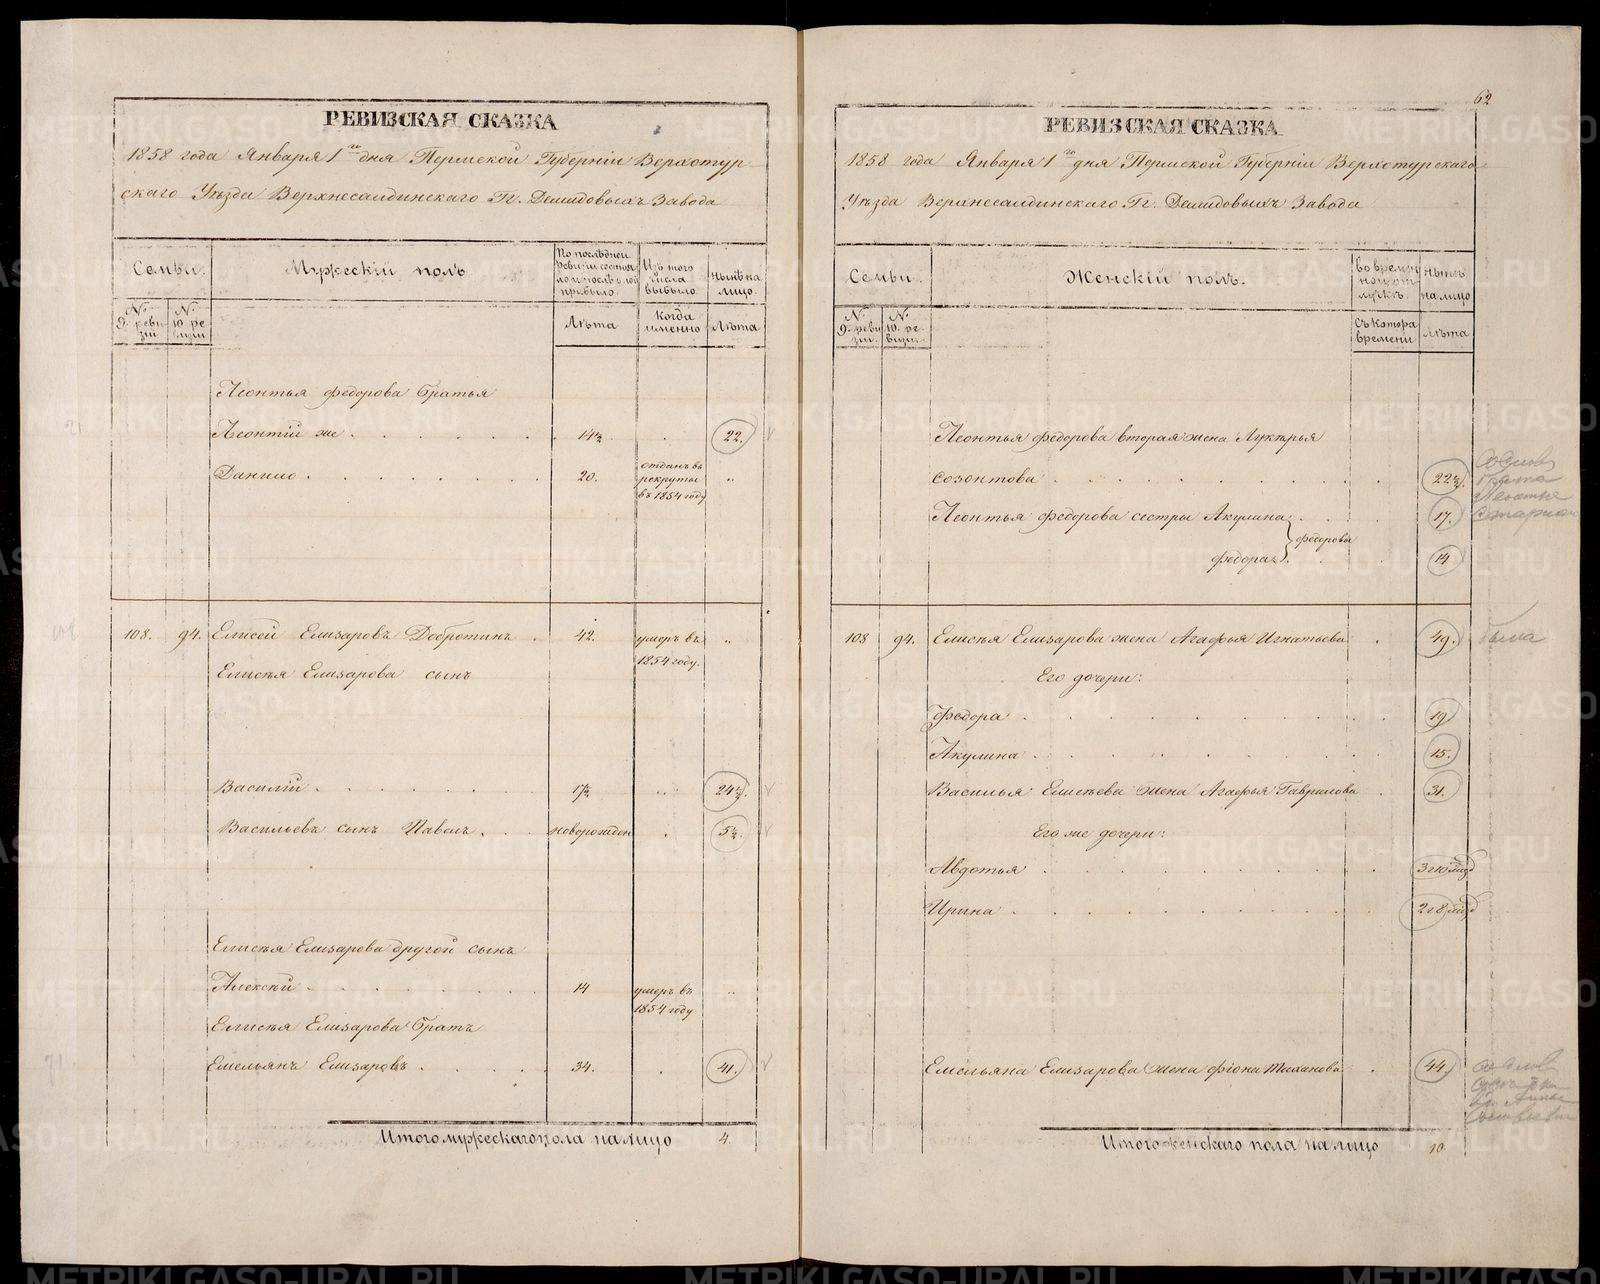 РЕВИЗСКАЯ СКАЗКА
1858 года Января 1го дня Пермской Губерніи Верхотур
скаго Уѣзда Верхнесалдинскаго Гг. Демидовыхъ Завода
Семьи.
Мужескій полъ
По послѣдней
ревизіи состоя
ло и послѣ оной
прибыло
Изъ того
числа
выбыло
Нынѣ на
лицо
№ 9. реви зіи
№ 10. ре визіи
Лѣта
Когда
именно
Лѣта
Леонтья Федорова братья
Леонтій же . . . . . . 14½ . 22.
Данило . . . . . . 20. отданъ въ рекруты въ 1854 году „
108. 94. Елисей Елизаровъ Добротинъ . 42. умеръ въ 1854 году. „
Елисѣя Елизарова сынъ
Василій . . . . . . 17½ „ 24½.
Васильевъ сынъ Павелъ . . новорожден . 5½.
Елисѣя Елизарова другой сынъ
Алексѣй . . . . . . 14 умеръ въ 1854 году „
Елисѣя Елизарова братъ
Емельянъ Елизаровъ . . . . . 34. . 41.
Итого мужескаго пола на лицо 4.
62
РЕВИЗСКАЯ СКАЗКА
1858 года Января 1го дня Пермской Губерніи Верхотурскаго
Уѣзда Верхнесалдинскаго Гг. Демидовыхъ Завода
Семьи.
Женскій полъ.
Во времен
ной от
лучкѣ.
Нынѣ
на лицо
№ 9. реви зіи.
№ 10. ре визіи.
Съ котора
времени
Лѣта
Леонтья Федорова вторая жена Лукерья
Созонтова . . . . . . . . . 22½.
Леонтья Федорова сестры Акулина . . . 17.
Федорова
Федора . . . 14
108 94. Елисѣя Елизарова жена Агафья Игнатьева . 49.
Его дочери:
Федора . . . . . . . . . 19
Акулина . . . . . . . . . 15.
Василья Елисѣева жена Агафья Гаврилова . 31.
Его же дочери:
Авдотья . . . . . . . . .
Ирина . . . . . . . . .
Емельяна Елизарова жена . 44.
Итого женскаго пола на лицо 10.
METRIKI.GASO-URAL.RU